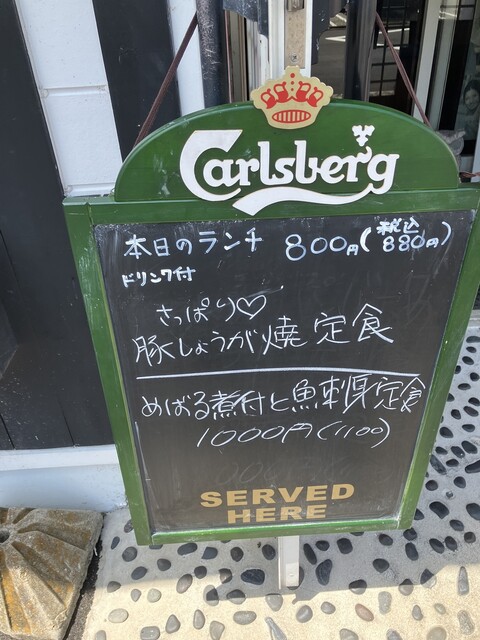 Carlsberg
本日のランチ 800円(税込880円)
ドリンク付
さっぱり♡
豚しょうが焼定食
めばる煮付と魚刺身定食
1000円(1100)
SERVED
HERE